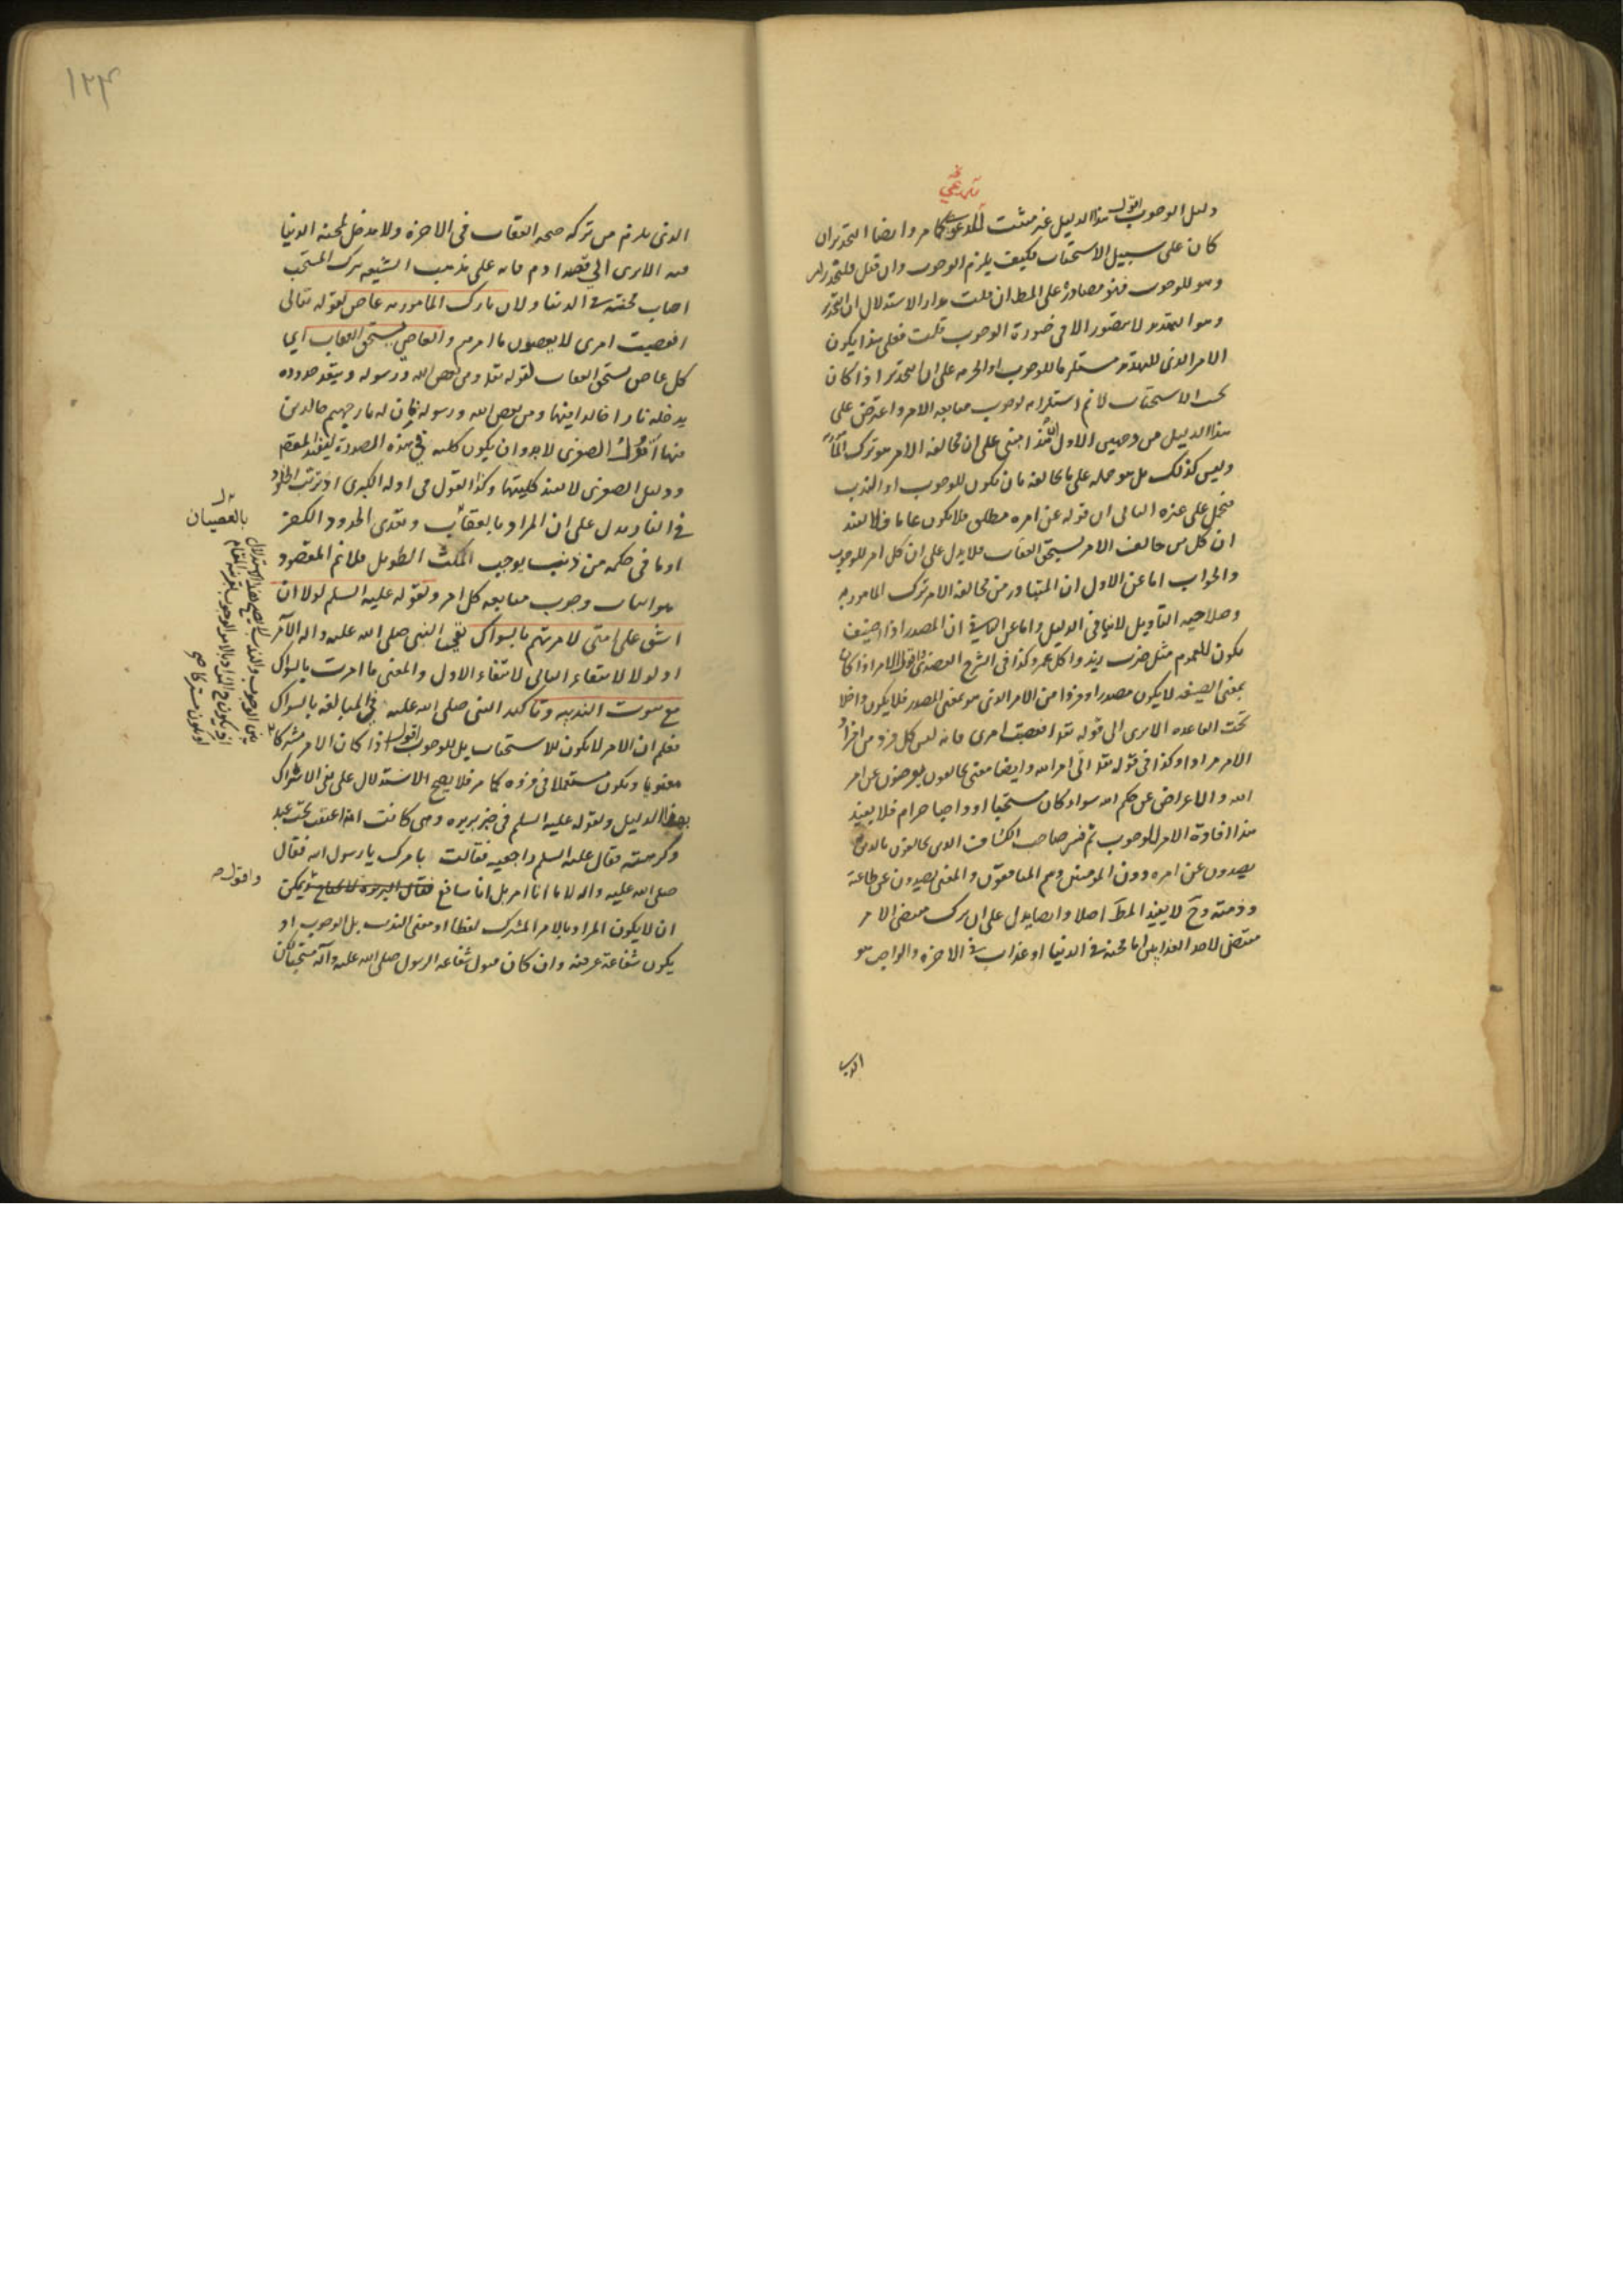 دليل الوجوب اقول هذا الدليل غير مثبت للمدعى كما مر وايضا التحذير ان
كان على سبيل الاستحباب فكيف يلزم الوجوب وان قيل فليحذر امر
وهو للوجوب فهو مصادرة على المط ان قلت مدار الاستدلال ان التحذير
وهو التهديد لا يتصور الا في صورة الوجوب قلت فعلى هذا يكون
الامر الذي للتهديد مستلزما للوجوب او الحرمة على ان التحذير اذا كان
تحت الاستحباب لا نم استلزامه لوجوب متابعة الامر واعترض على
هذا الدليل من وجهين الاول ان هذا مبني على ان مخالفة الامر هو ترك
وليس كذلك بل هو حمله على ما يخالفه بان يكون للوجوب او الندب
فيحمل على غيره الثاني ان قوله عن امره مطلق فلا يكون عاما فلا يفيد
ان كل من خالف الامر يستحق العقاب فلا يدل على ان كل امر للوجوب
والجواب اما عن الاول ان المتبادر من مخالفة الامر ترك المامور به
وصلاحية التاويل لا ينافي الدليل واما عن الثاني ان المصدر اذا اضيف
يكون للعموم مثل ضرب زيد واكل عمرو وكذا في الشرح العضدي واقول الامر اذا كان
بمعنى الصيغة لا يكون مصدرا وفردا من الامر الذي هو بمعنى المصدر فلا يكون داخلا
تحت القاعدة الا يرى الى قوله تعا افعصيت امري فانه ليس كل فرد من افراد
الامر مرادا وكذا في قوله تعا اتى امر الله وايضا معنى يخالفون يعرضون عن امر
الله والاعراض عن حكم الله سواء كان مستحبا او واجبا حرام فلا يفيد
هذا افادة الامر للوجوب ثم فسر صاحب الكشاف الذين يخالفون بالذين
يصدون عن امره دون المومنين وهم المنافقون والمعنى يصدون عن طاعته
ودينه وح لا يفيد المط اصلا وايضا يدل على ان ترك مقتضى الامر
مقتضى لاحد العذابين اما محنة في الدنيا او عذاب في الاخرة والواجب هو
الذي يلزم من تركه صحة العقاب في الاخرة ولا مدخل لمحنة الدنيا
فيه الا يرى الى قصة ادم فانه على مذهب الشيعة بترك المستحب
اصاب محنة في الدنيا ولان تارك المامور به عاص لقوله تعالى
افعصيت امري لا يعصون ما امرهم والعاصي يستحق العقاب اي
كل عاص يستحق العقاب لقوله تعا ومن يعص الله ورسوله ويتعد حدوده
يدخله نارا خالدا فيها ومن يعص الله ورسوله فان له نار جهنم خالدين
فيها اقول الصغرى لا بد وان يكون كلية في هذه الصورة ليفيد المقصد
ودليل الصغرى لا يفيد كليتها وكذا القول في ادلة الكبرى اذ ترتب الخلود
في النار يدل على ان المراد بالعقاب وتعدي الحدود الكفر
او ما في حكمه من ذنب يوجب المكث الطويل فلا نم المقصود
هو اثبات وجوب متابعة كل امر ولقوله عليه السلم لولا ان
اشق على امتي لامرتهم بالسواك نفى النبي صلى الله عليه واله الامر
اذ لولا لانتفاء الثاني لانتفاء الاول والمعنى ما امرت بالسواك
مع ثبوت الندبية وتاكيد النبي صلى الله عليه في المبالغة بالسواك
فعلم ان الامر لا يكون للاستحباب بل للوجوب اقول اذا كان الامر مشتركا
معنويا ويكون مستعملا في فرده كما مر فلا يصح الاستدلال على نفي الاشتراك
بهذا الدليل ولقوله عليه السلم في خبر بريرة وهي كانت امة اعتقت تحت عبد
وكرهته فقال عليه السلم راجعيه فقالت بامرك يا رسول الله فقال
صلى الله عليه واله لا ما انا امر بل انا شافع واقول يمكن
ان لا يكون المراد بالامر المشترك لفظا او معنى الندب بل الوجوب او
يكون شفاعة عرفية وان كان قبول شفاعة الرسول صلى الله عليه وآله مستحبا لكن
بالعصيان
۱۲۳